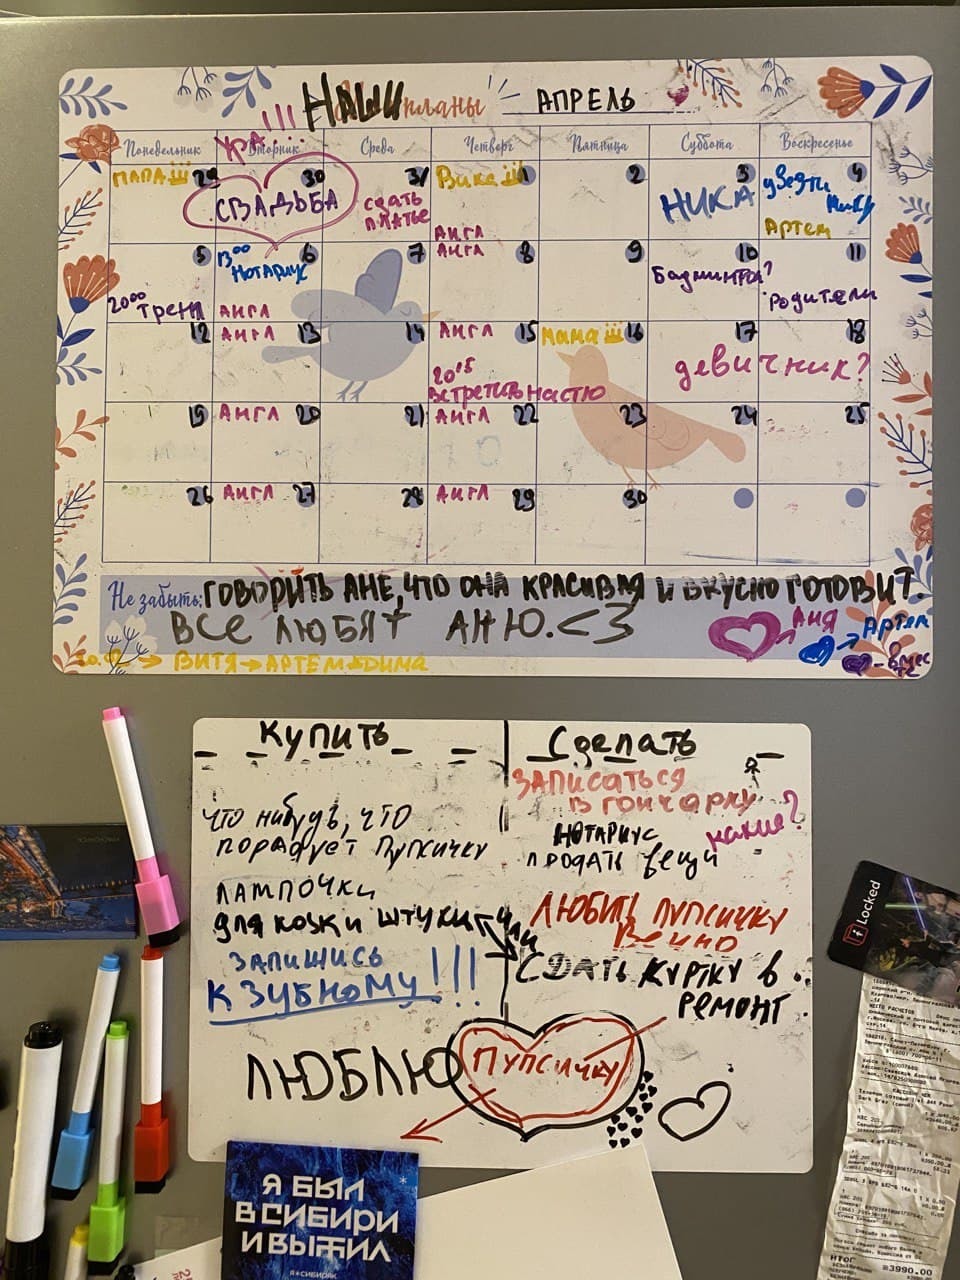 НАШИ планы АПРЕЛЬ
УРА!!!
Понедельник Вторник Среда Четверг Пятница Суббота Воскресенье
ПАПА 29 30 31 Вика 1 2 3 4
СВАДЬБА
сдать
платье
НИКА
Артем
АНГЛ
5 6 7 8 9 10 11
13⁰⁰
Нотариус
АНГЛ
Бадминтон?
20⁰⁰
Трен
АНГЛ
Родители
12 13 14 15 16 17 18
АНГЛ
АНГЛ
Мама
20¹⁵
Встретить Настю
девичник?
19 20 21 22 23 24 25
АНГЛ
АНГЛ
26 27 28 29 30
АНГЛ
АНГЛ
Не забыть: ГОВОРИТЬ АНЕ, ЧТО ОНА КРАСИВАЯ И ВКУСНО ГОТОВИТ.
ВСЕ ЛЮБЯТ АНЮ. <3
АНЯ
Артём
- вместе
ВИТЯ → АРТЕМ ДИМА
Купить
что нибудь, что
порадует Пупсичку
ЛАМПОЧКИ
для кожи штуки
ЗАПИШИСЬ
К ЗУБНОМУ!!!
Сделать
ЗАПИСАТЬСЯ
В ГОНЧАРКУ
НОТАРИУС
какие?
ПРОДАТЬ вещи
ЛЮБИТЬ ПУПСИЧКУ
ВЕЧНО
СДАТЬ КУРТКУ В
РЕМОНТ
ЛЮБЛЮ ПУПСИЧКУ
Я БЫЛ
В СИБИРИ
И ВЫЖИЛ
Я*СИБИРЯК
Locked
ИТОГ
=3990.00